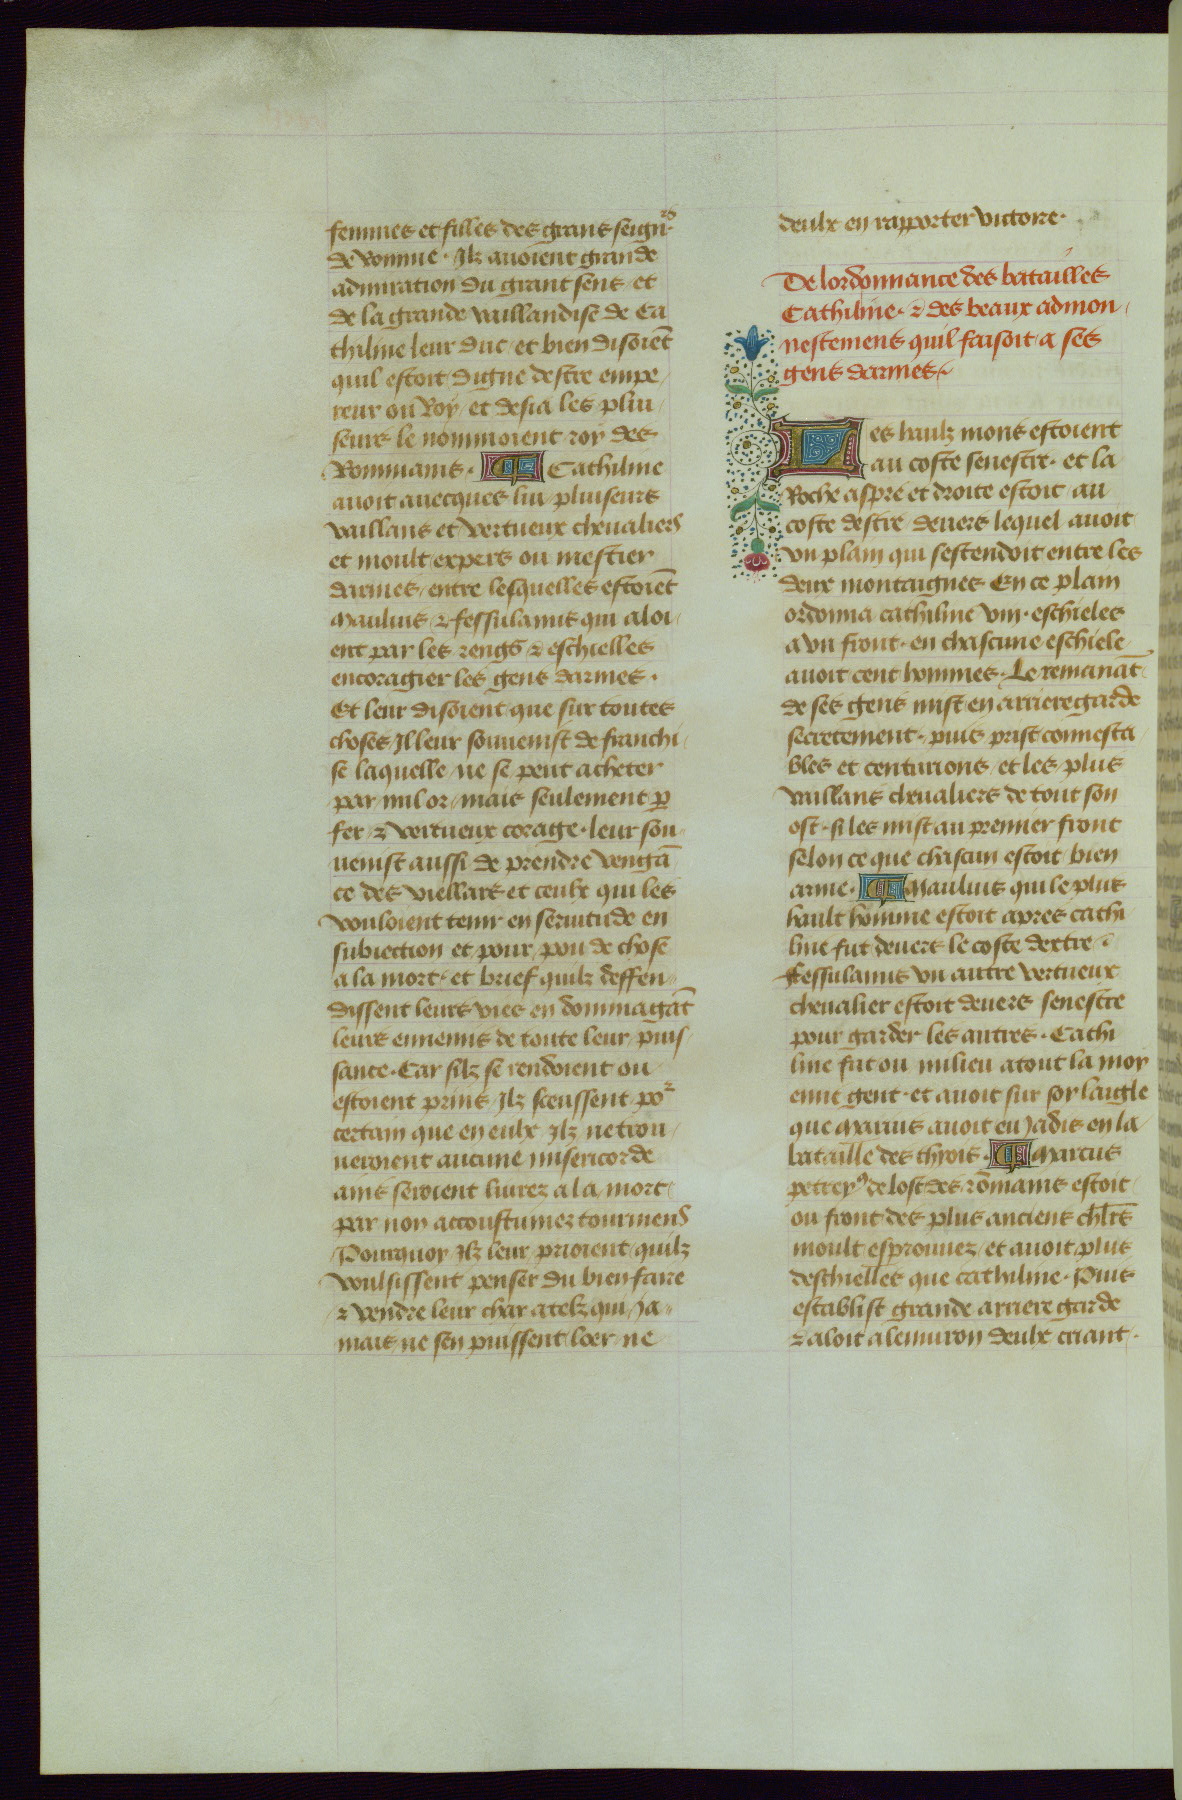 femmes et filles des grans seign̄rs
de Romme. Ilz auoient grande
admiration du grant sens et
de la grande vaillandise de Ca
thiline leur duc / et bien disoiēt
quil estoit digne destre empe /
reur ou Roy / et desia les pluі /
seurs le nommoient roy des
Rommains. ¶ Cathiline
auoit auecques lui pluiseurs
vaillans et vertueux cheualiers
et moult expers ou mestier
darmes / entre lesquelles estoiēt
Manlius / ⁊ fessulanus qui aloi /
ent par les rengs ⁊ eschielles
encoragier les gens darmes.
Et leur disoient que sur toutes
choses Il leur souuenist de franchi /
se laquelle / ne se peut acheter
par nul or / mais seulement p̄
fer / ⁊ vertueux corage. leur sou /
uenist aussi de prendre vengā
ce des viellars et ceulx qui les
vouloient tenir en seruitude en
subiection et pour / pou de chose
a la mort. et brief quilz deffen /
dissent leurs vies en dommagāt
leurs ennemis de toute leur / puis /
sance. Car silz se rendoient ou
estoient prins / Ilz sceussent poꝛ
certain que en eulx Ilz ne trou /
ueroient aucune misericorde
ains seroient liurez a la / mort /
par non accoustumez tourmens
Pourquoy Ilz leur / prioient / quilz
voulsissent penser du bien faire
⁊ vendre leur char a telz qui / Ja /
mais / ne sen puissent / loer / ne
deulx en rapporter victoire.
De lordonnance des batailles
Cathiline. ⁊ des beaux admon /
nestemens quil faisoit a ses
gens darmes.
Les haulz mons estoient
au coste senestre. et la
Roche aspre et droite estoit / au
coste destre / deuers lequel auoit
vn plain qui sestendoit entre les
deux montaignes En ce plain
ordonna cathiline viii. eschieles
a vn front. en chascune eschiele
auoit cent hommes. Le remanāt
de ses gens mist en arrieregarde
secretement. puis prist connesta /
bles et centurions / et les / plus
vaillans cheualiers de tout son
ost. si les mist au premier front
selon ce que chascun estoit bien
arme. ¶ Manlius qui le plus
hault homme estoit apres cathi
line fut deuers le coste dextre.
Fessulanus vn autre vertueux
cheualier estoit deuers senestre
pour garder les autres. Cathi
line fut ou milieu atout la moy
enne gent. et auoit sur soy laigle
que Marius auoit eu Jadis en la /
bataille des thyois. ¶ Marcus
petreyꝰ de lost des rōmains estoit
ou front des plus anciens chl̄rs
moult / esprouuez / et auoit plus
deschielles que cathiline. Puis
establist grande arriere garde
⁊ aloit alenuiron deulx criant.